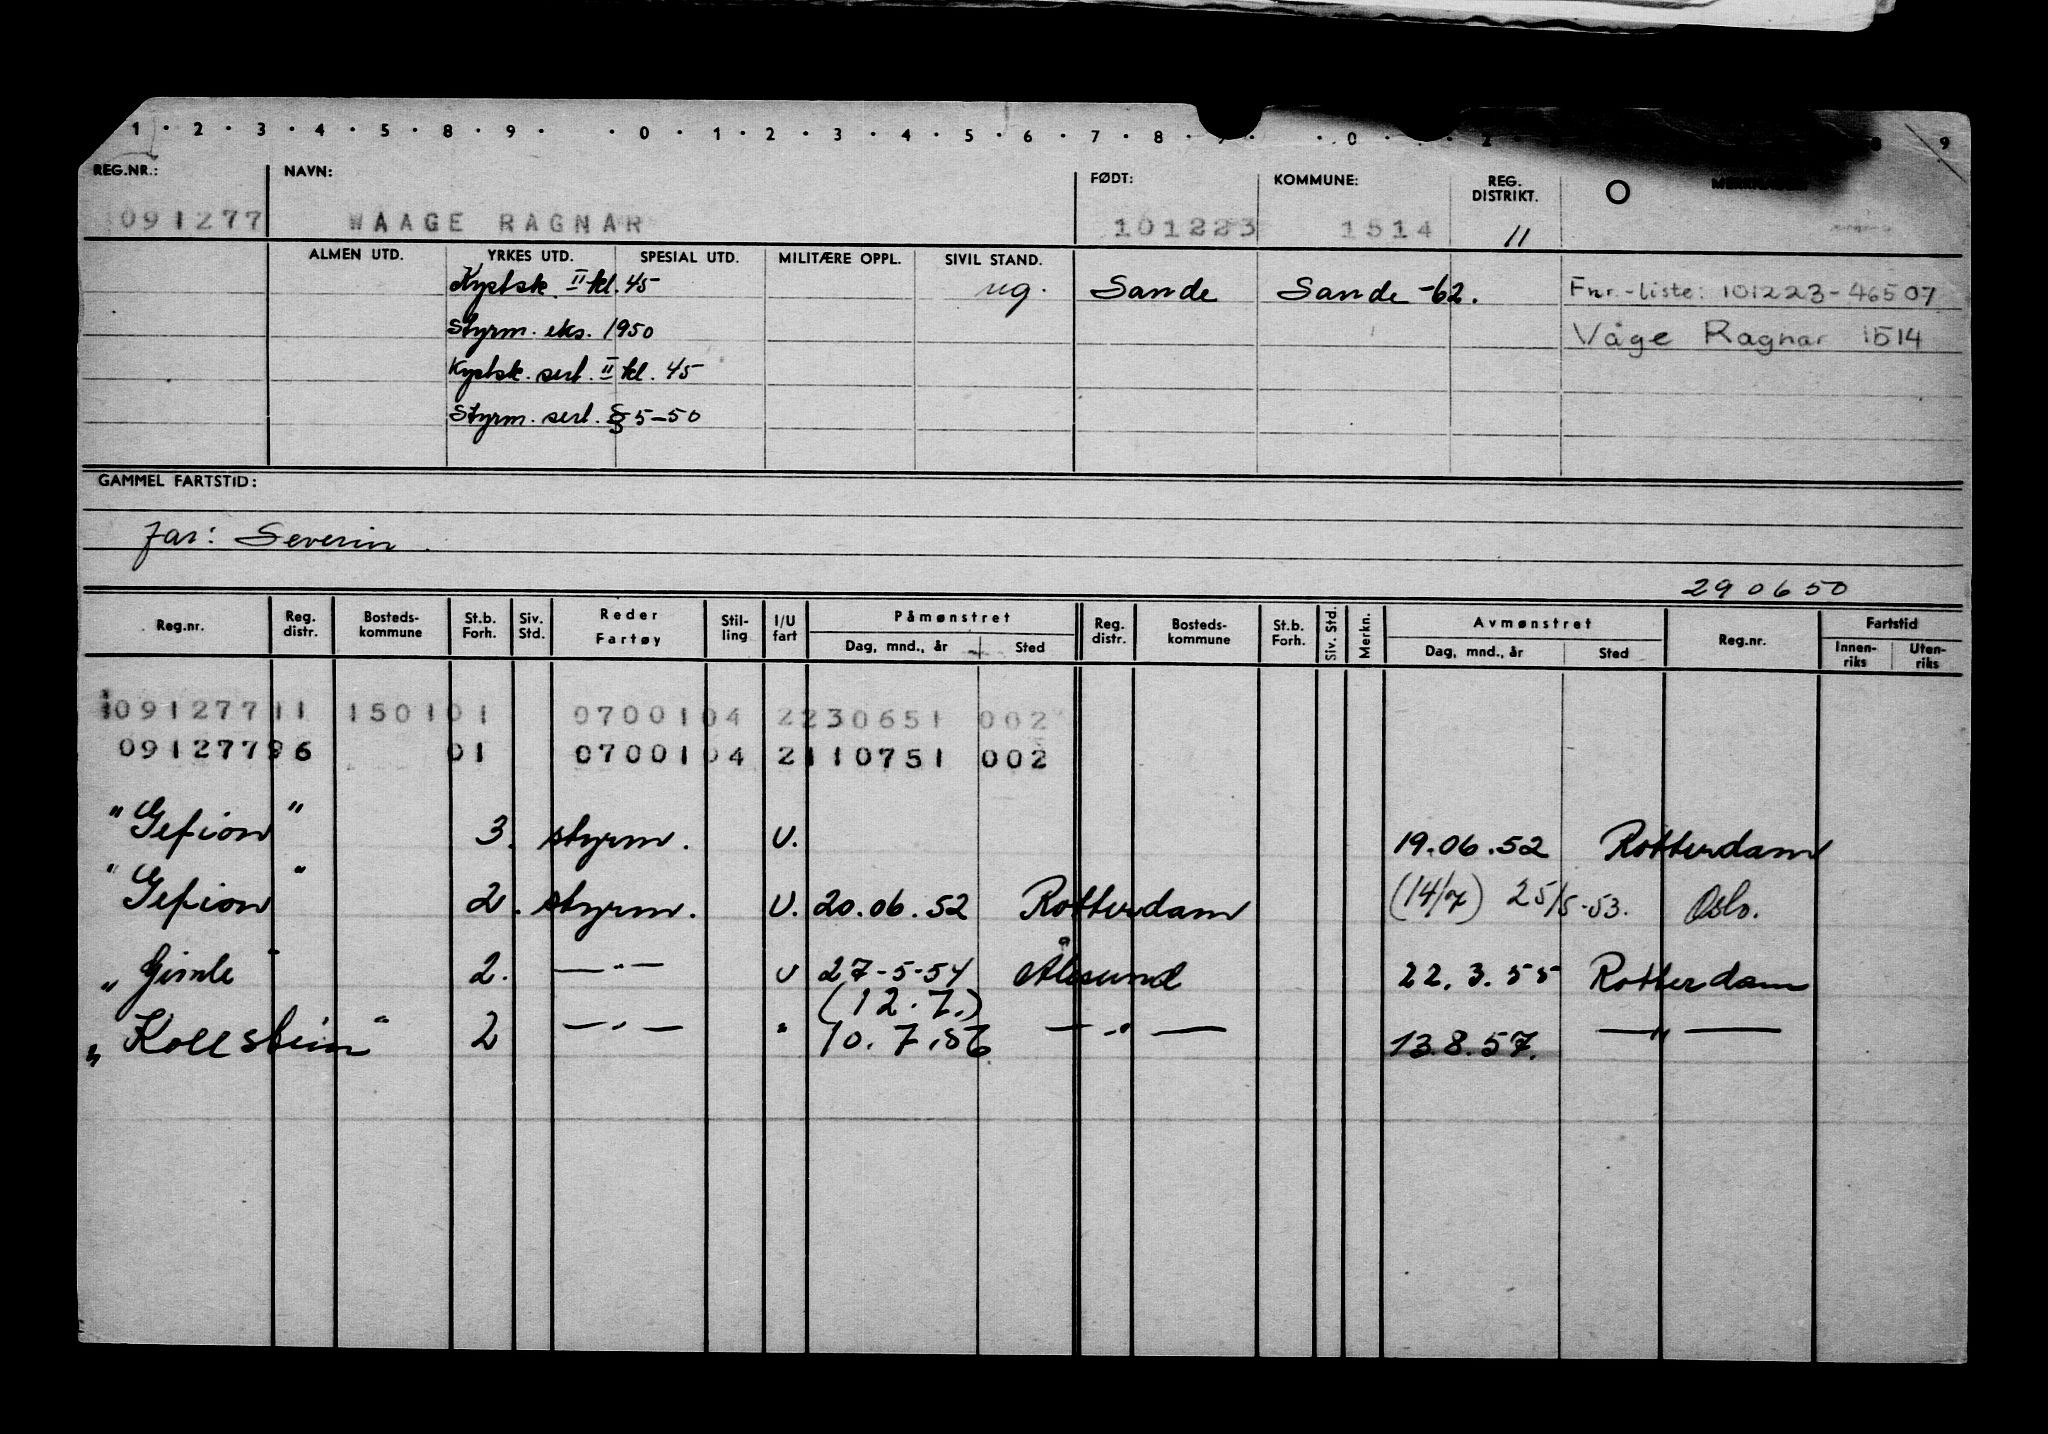 1 · 2 · 3 · 4 · 5 · 8 · 9 · · 0 · 1 · 2 · 3 · 4 · 5 · 6 · 7 · 8 · · 0 · 2 8 9
REG.NR.: NAVN: FØDT: KOMMUNE: REG. DISTRIKT.
091277 WAAGE RAGNAR 101223 1514 11
ALMEN UTD. YRKES UTD. SPESIAL UTD. MILITÆRE OPPL. SIVIL STAND.
Kystsk. II kl. 45 ug. Sande Sande -62. Fnr.-liste: 101223-46507
Styrm. eks. 1950 Våge Ragnar 1514
Kystsk. sert. II kl. 45
Styrm. sert. § 5-50
GAMMEL FARTSTID:
Far: Severin.
290650
Reg.nr. Reg. distr. Bosteds- kommune St.b. Forh. Siv. Std. Reder Fartøy Stil- ling I/U fart Påmønstret Dag, mnd., år Sted Reg. distr. Bosteds- kommune St.b. Forh. Siv. Std. Merkn. Avmønstret Dag, mnd., år Sted Reg.nr. Fartstid Innen- riks Uten- riks
09127711 150101 0700104 2230651 002
09127796 01 0700104 2110751 002
"Gefion" 3. styrm. U. 19.06.52 Rotterdam
"Gefion" 2. styrm. U. 20.06.52 Rotterdam (14/7) 25/5-53. Oslo.
"Gimle" 2. —"— U 27-5-54 Ålesund 22.3.55 Rotterdam
(12.7.)
"Kollstein" 2 —"— " 10.7.56 —"— 13.8.57. —"—